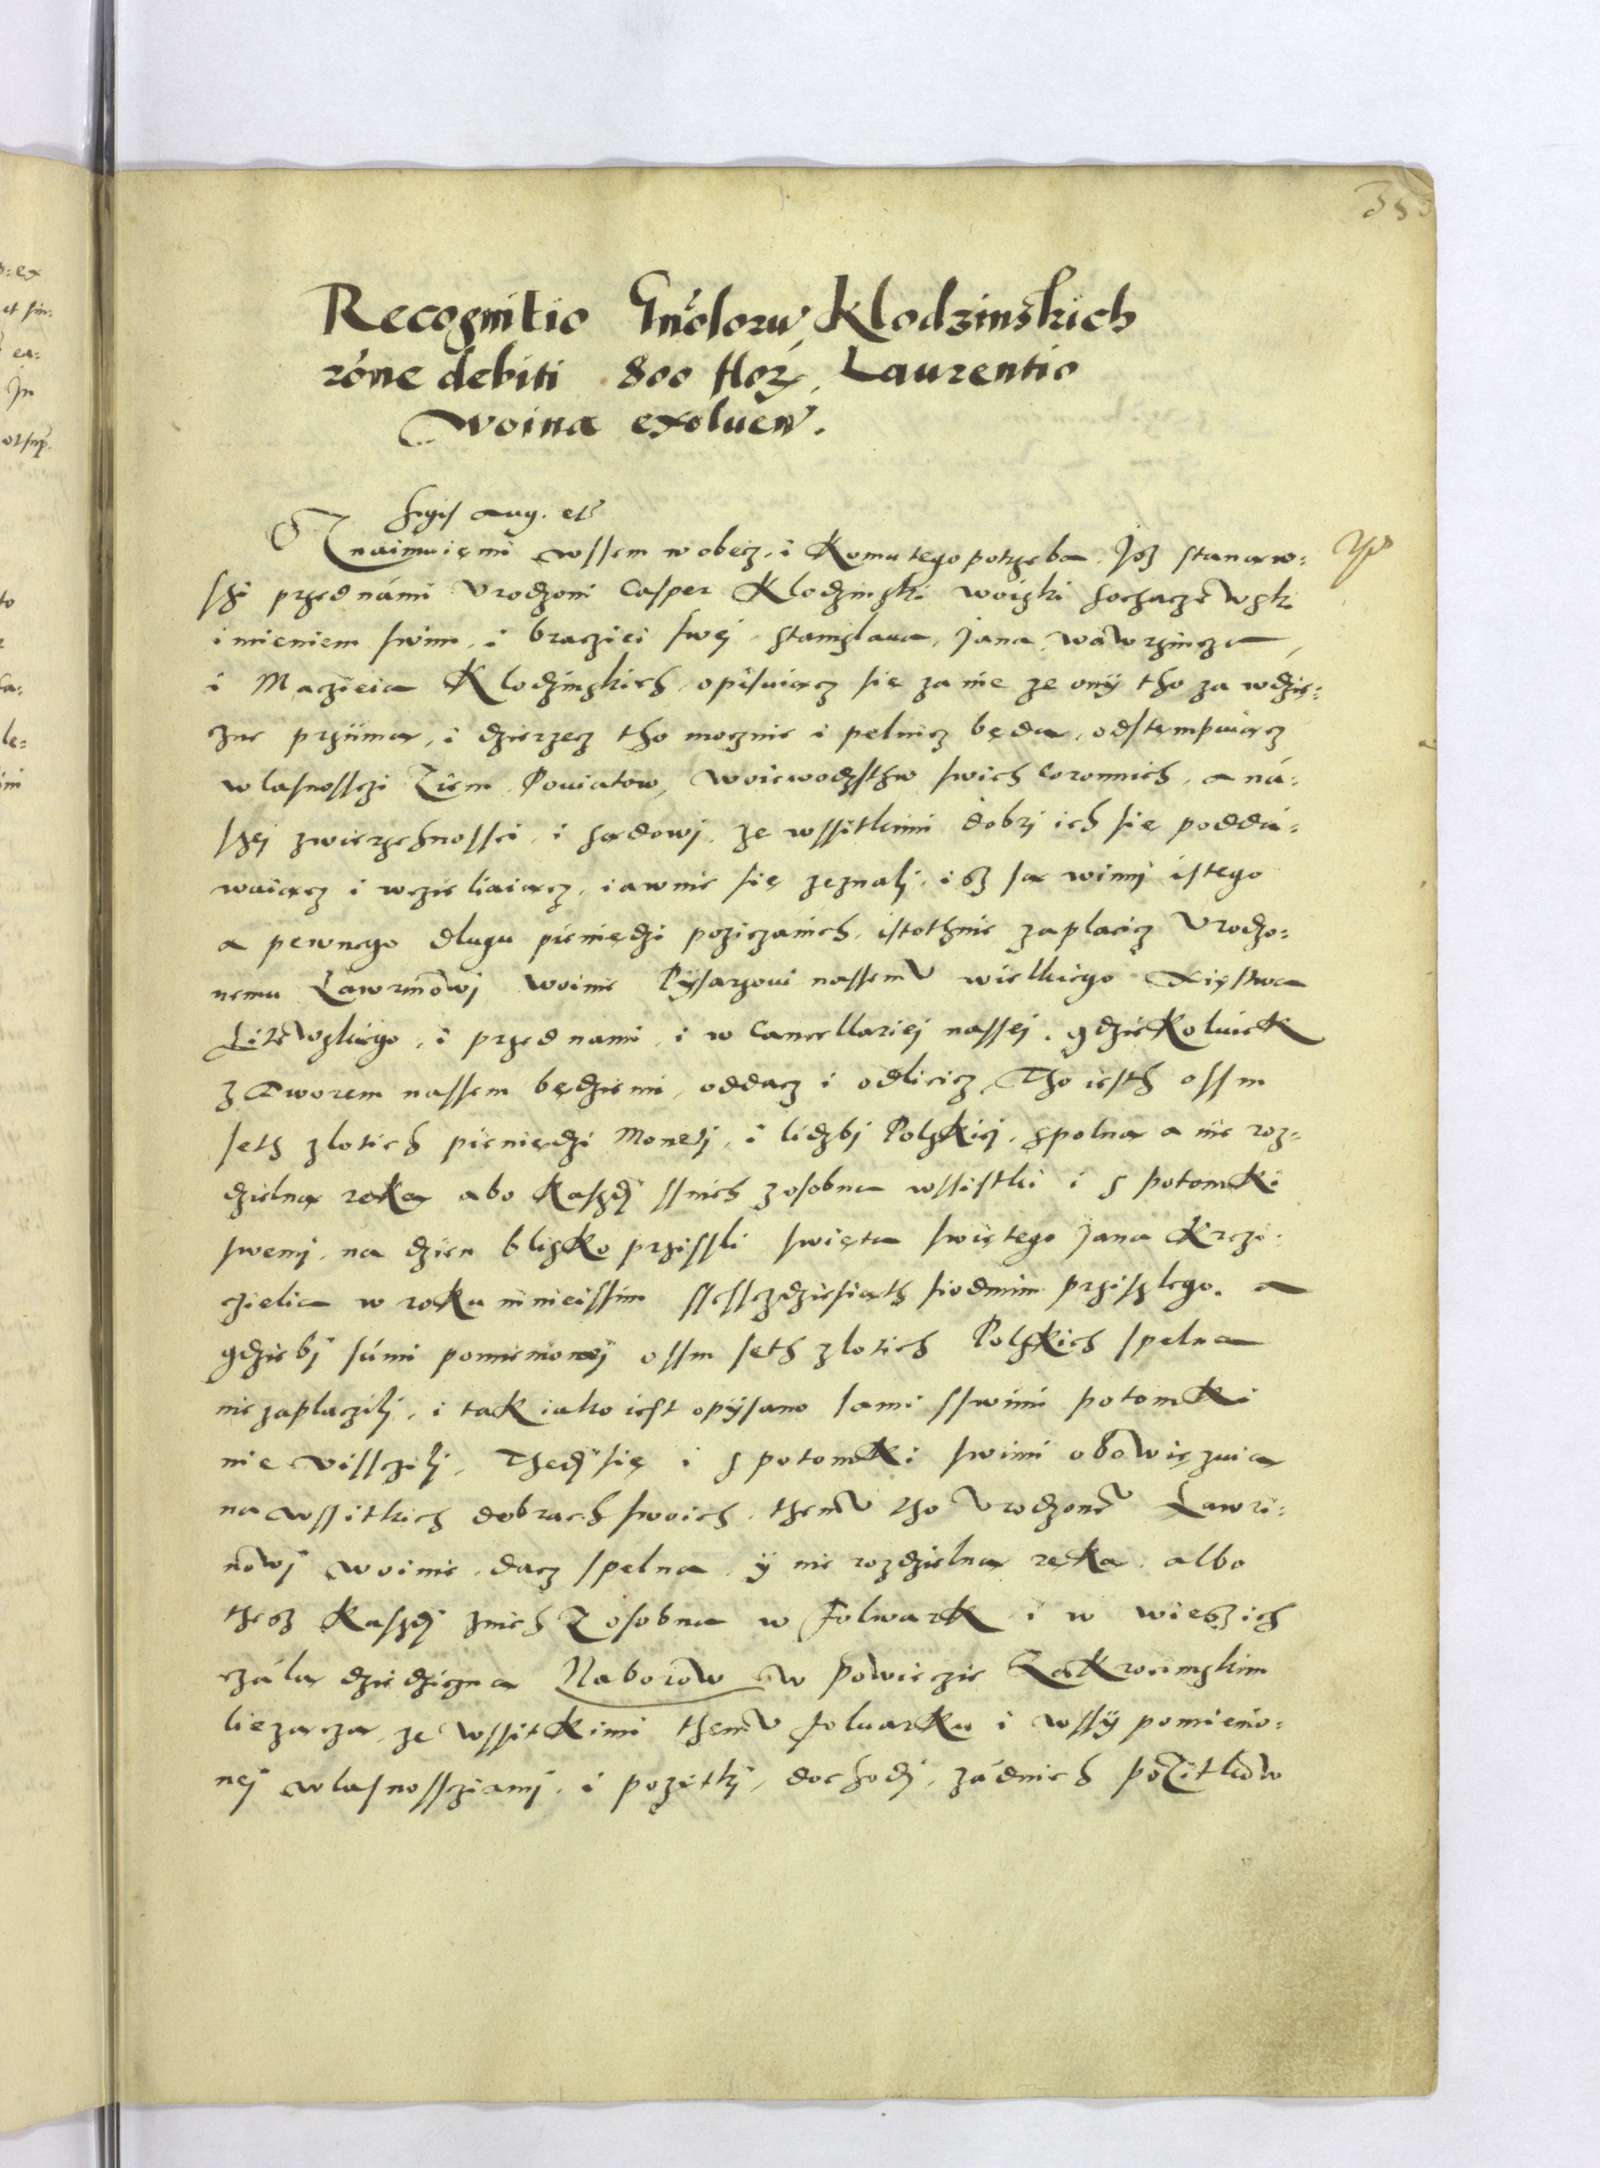 Recognitio Gn̄olorū Klodzinskich
rōne debiti 800 flor. Laurentio
Woina exoluen̄.
Sigis Aug. etc
Znaimuięmi wssem wobecz, i Komu tego potrzeba. Jsz stanaw=
szi przed námi Urodzoni Casper Klodzinski woiski sochaczewski
imieniem swim, i bracziei swej, Stanislawa, Jana, Wawrzincza,
i Maczieia Klodzinskich, opisuiącz się za nie ze onÿ tho za wdzię=
czne prziima, i dzierzecz tho mocznie i pelnicz będa, odstempuiącz
wlasnossczi Ziem, Powiatow, Woiewodzthw swich Coronnich, a ná=
szej zwierzchnossci, i sądowj, ze wssitkimi dobrj ich się poddá=
waiącz i wczieliaiącz, iawnie się zeznalj, isz są winnj istego
a pewnego dlugu pieniędzi pozicznich, istothnie zaplacicz Urodzo=
nemu Lawrinowj Woinie Pÿsarzowi nassemu wielkiego Xięstwa
Litewskiego, i przed nami, i w Cancellariej nassej, gdzieKolwieK
z Dworem nassem będziemi, oddacz i odlicicz, Tho iesth ossm
seth zlotich pieniędzi Monetj, i lidzbj PolsKiej, spolną a nie roz=
dzielną reKą abo Kaszdÿ ssnich zosobna wssistki i s potomKi
swemj, na dzien blisKo prziszli swięta swiętego Jana Krzci=
cziela w roKu ninieissim ssesczdziesiąth siodmim przislego. a
gdziebj súmi pomienionej ossm seth zlotich PolsKich spelna
nie zaplaczilj, i taK iako iest opÿsano sami sswimi potomKi
nie uissczilj, Thedÿ się i s potomKi swimi obowięzuią
na wssitkich dobrach swoich themu tho Urodzonemu Lawri=
nowj Woinie, dacz spelna, ÿ nie rozdzielną ręKą. albo
thesz Kaszdj znich Zosobna w FolwarK i w wieszich
czálą dziedziczną Naborow w Powieczie ZaKroczimskim
liezączą, ze wssitKimi themu folwarKu i wssÿ pomienio=
nej wlasnossciami, i pozitkj, dochodj, zádnich poZitkow